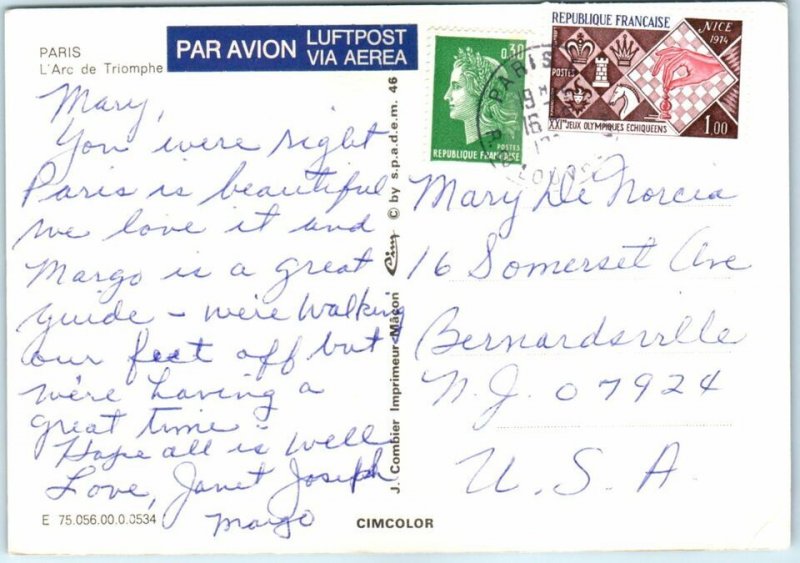 PARIS
L'Arc de Triomphe
PAR AVION
LUFTPOST
VIA AEREA
Mary,
You were right
Paris is beautiful
we love it and
Margo is a great
guide – we're walking
our feet off but
we're having a
great time.
Hope all is well
Love, Janet Joseph
Margo
E 75.056.00.0.0534
CIMCOLOR
J. Combier Imprimeur Mâcon Cim © by s.p.a.d.e.m. 46
0,30
POSTES
REPUBLIQUE FRANÇAISE
REPUBLIQUE FRANÇAISE
NICE
1974
POSTES
XXIes JEUX OLYMPIQUES ECHIQUEENS
1,00
PARIS
16
Mary De Norcia
16 Somerset Ave
Bernardsville
N.J. 07924
U.S.A.